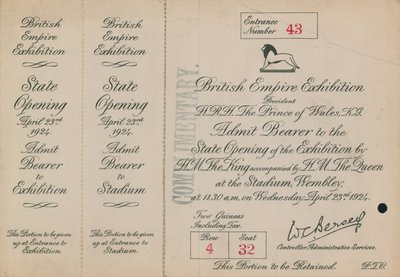 British
Empire
Exhibition
State
Opening
April 23rd
1924.
Admit
Bearer
to
Exhibition
This Portion to be given
up at Entrance to
Exhibition.
British
Empire
Exhibition
State
Opening
April 23rd
1924.
Admit
Bearer
to
Stadium
This Portion to be given
up at Entrance to
Stadium.
COMPLIMENTARY.
Entrance
Number 43
British Empire Exhibition
President
H.R.H. The Prince of Wales, K.G.
Admit Bearer to the
State Opening of the Exhibition by
H.M. The King accompanied by H.M. The Queen
at the Stadium, Wembley,
at 11.30 a.m. on Wednesday, April 23rd 1924.
Two Guineas
Including Tax.
Row Seat
4 32
Controller, Administrative Services.
This Portion to be Retained.
P.T.O.